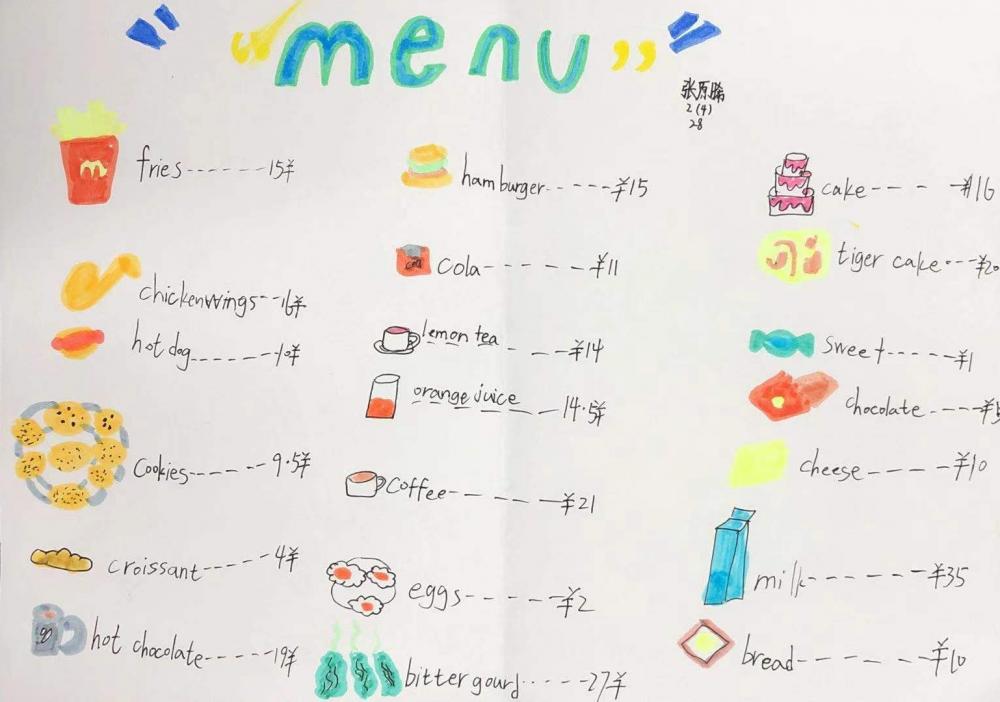 “menu”
张原晞
2(4)
28
fries------15¥
chickenwings--16¥
hot dog------10¥
Cookies------9.5¥
croissant------4¥
hot chocolate-----19¥
hamburger-----¥15
cola------¥11
lemon tea---¥14
orange juice--14.5¥
coffee-----¥21
eggs------¥2
bitter gourd-----27¥
cake----¥16
tiger cake----¥20
sweet-----¥1
chocolate----
cheese-----¥10
milk-------¥35
bread------¥10